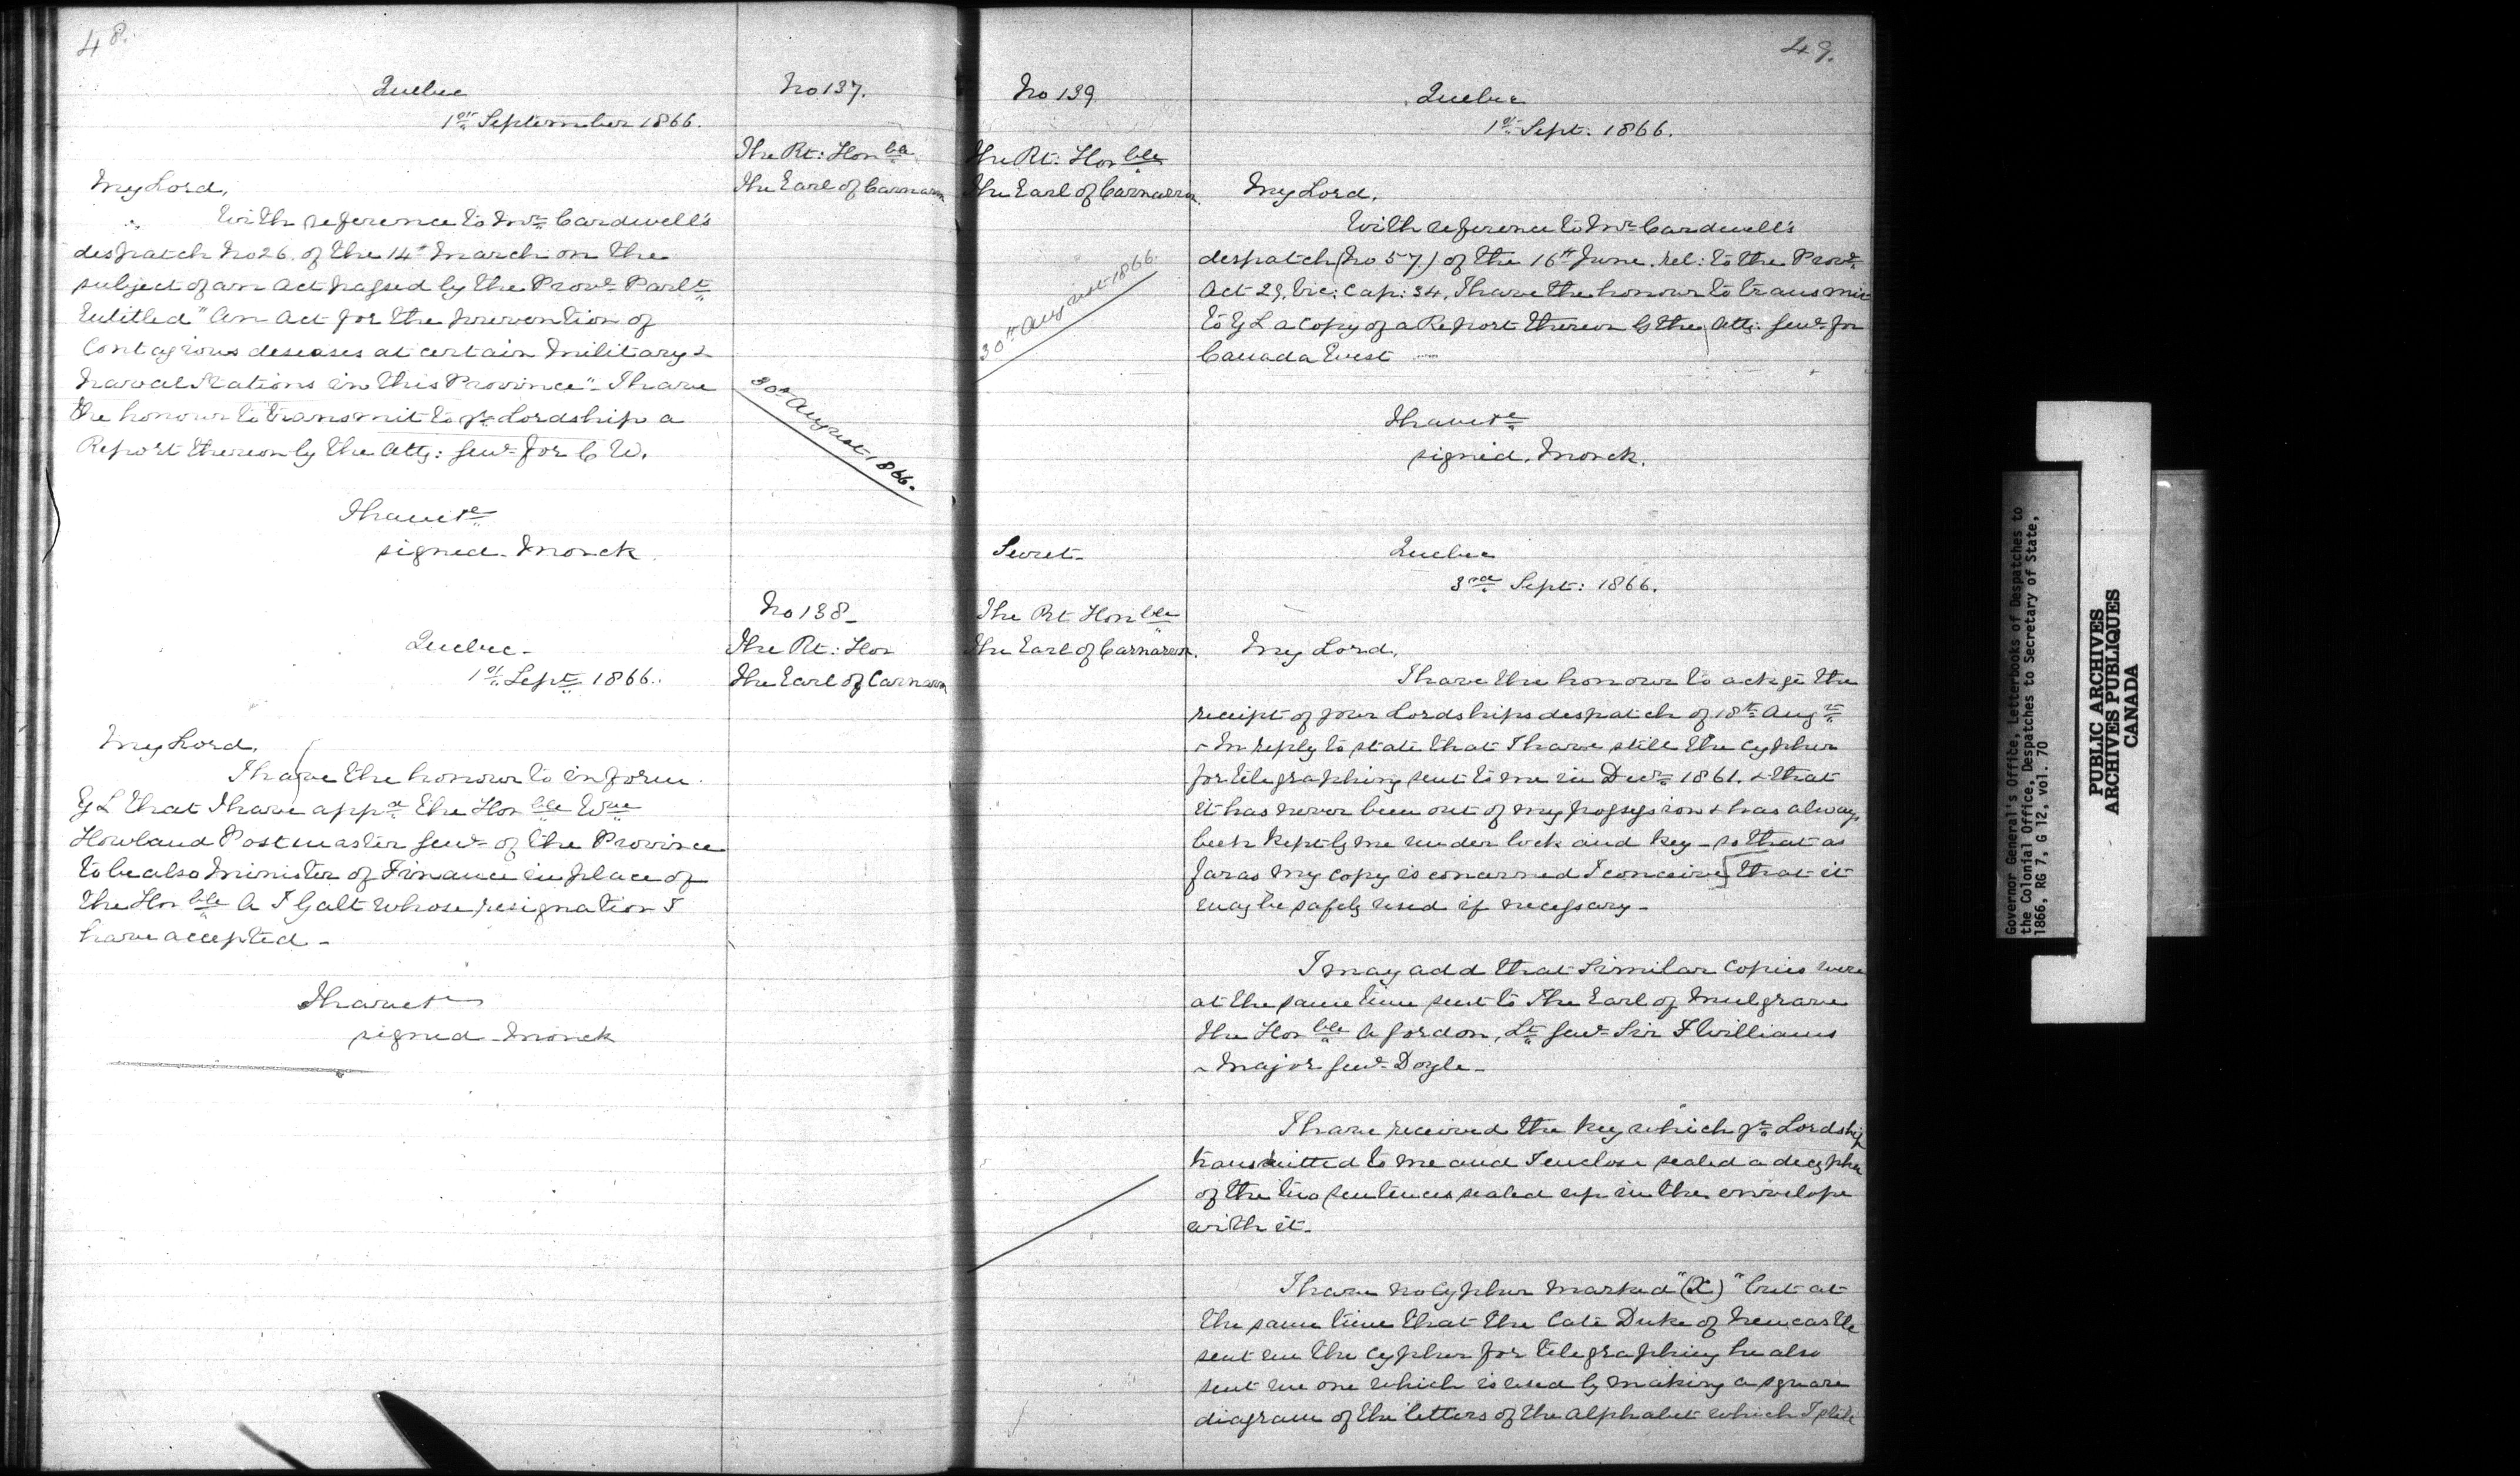 48.
Quebec
1st September 1866.
No 137.
The Rt: Honble
The Earl of Carnarvon
My Lord,
With reference to Mr Cardwell's
despatch No 26. of the 14th March on the
subject of an Act passed by the Provl Parlt
Entitled "An Act for the prevention of
Contagious deseases at certain Military &
Naval Stations in this Province" - I have
the honour to transmit to yr Lordship a
Report thereon by the Atty: Genl for C W.
30th August 1866.
I have &c
signed - Monck.
No 138 -
The Rt: Hon
The Earl of Carnarvon
Quebec -
1st Sept 1866.
My Lord,
I have the honour to inform
Y L that I have appd the Honble Wm
Howland Postmaster Genl of the Province
to be also Minister of Finance in place of
the Honble A T Galt whose resignation I
have accepted -
I have &c
signed - Monck
49.
No 139
The Rt: Honble
The Earl of Carnarvon.
Quebec
1st Sept: 1866.
My Lord,
With reference to Mr Cardwell's
despatch (No 57) of the 16th June. rel: to the Provl
Act 29. Vic: Cap: 34, I have the honour to transmit
to Y L a copy of a Report thereon by the Atty: Genl for
Canada West
30th August 1866.
I have &c
signed. Monck.
Secret -
The Rt Honble
The Earl of Carnarvon.
Quebec
3rd Sept: 1866.
My Lord,
I have the honour to ackge the
receipt of your Lordships despatch of 18th Augst
& in reply to state that I have still the cypher
for telegraphing sent to me in Decr 1861. & that
it has never been out of my possession & has always
been kept by me under lock and key - so that as
far as my copy is concerned I conceive that it
may be safely used if necessary -
I may add that similar copies were
at the same time sent to The Earl of Mulgrave
The Honble A Gordon, Lt Genl Sir F Williams
& Major Genl Doyle -
I have received the key which yr Lordship
transmitted to me and I enclose sealed a decypher
of the two sentences sealed up in the envelope
with it -
I have no cypher marked "(X)" but at
the same time that the late Duke of Newcastle
sent me the cypher for telegraphing he also
sent me one which is used by making a square
diagram of the letters of the alphabet which I
Governor General's Office, Letterbooks of Despatches to
the Colonial Office, Despatches to Secretary of State,
1866, RG 7, G 12, vol. 70
PUBLIC ARCHIVES
ARCHIVES PUBLIQUES
CANADA